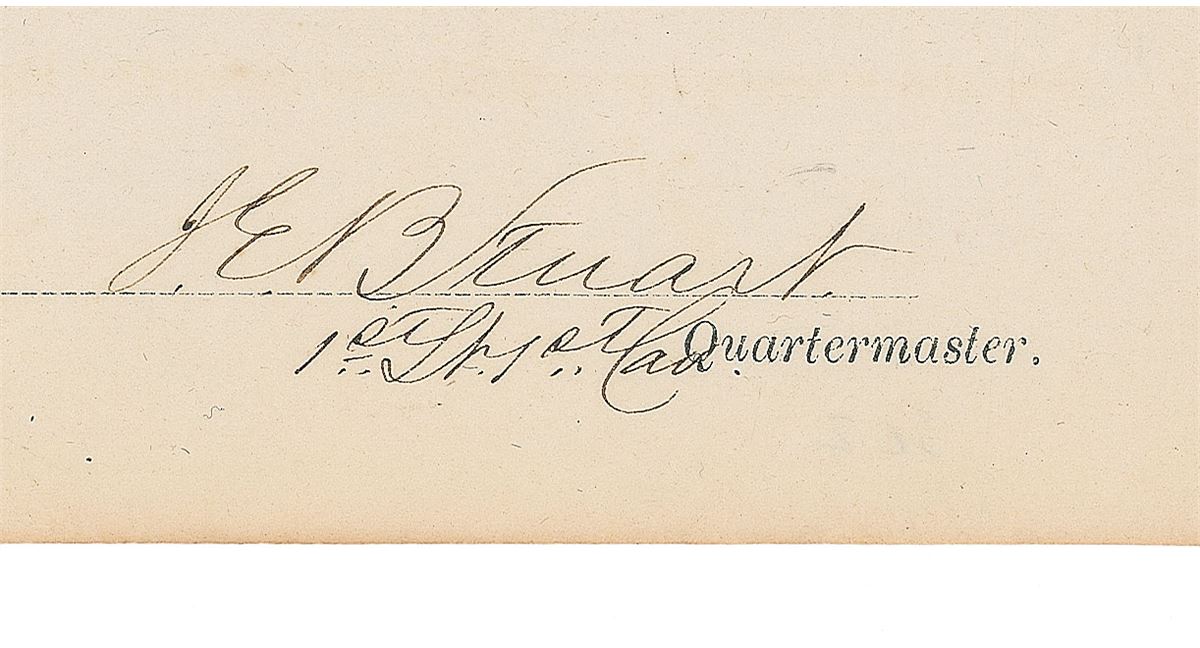 J. E. B Stuart.
1st Lt. 1st Cav. Quartermaster.